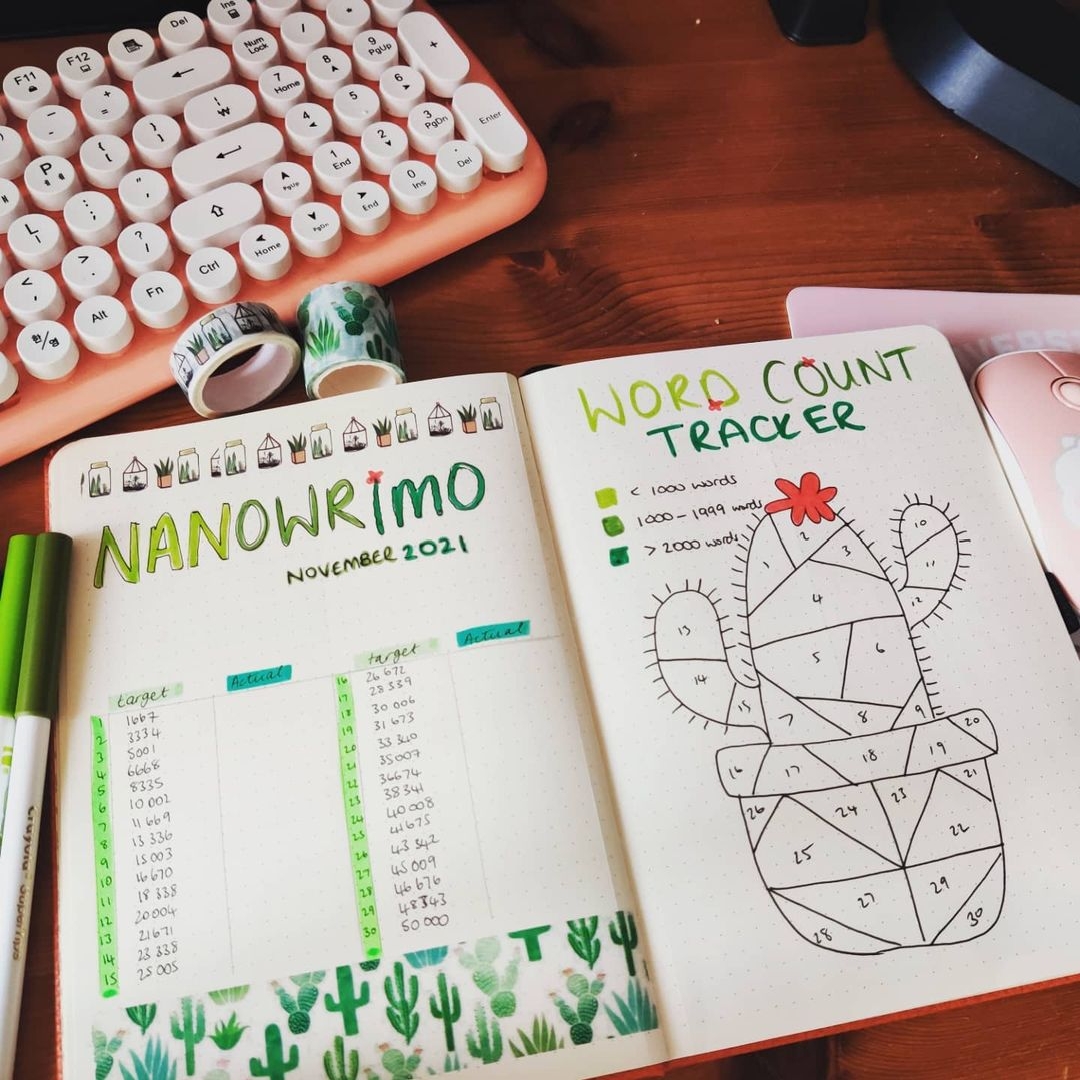 F11
F12
Del
Ins
Num Lock
/
*
7 Home
8
9 PgUp
+
4
5
6
1 End
2
3 PgDn
Enter
0 Ins
. Del
P
L
PgUp
End
PgDn
Home
Ctrl
Fn
Alt
한/영
NANOWRIMO
NOVEMBER 2021
target Actual target Actual
1 1667 16 26 672
2 3334 17 28 339
3 5001 18 30 006
4 6668 19 31 673
5 8335 20 33 340
6 10 002 21 35007
7 11 669 22 36674
8 13 336 23 38341
9 15 003 24 40 008
10 16 670 25 41675
11 18 338 26 43 342
12 20 004 27 45 009
13 21671 28 46 676
14 23 338 29 48343
15 25 005 30 50 000
WORD COUNT
TRACKER
< 1000 words
1000 - 1999 words
> 2000 words
1 2 3
4
5 6
7 8 9
10
11
12
13
14
15
16 17 18 19 20
21
26 24 23
25 22
27 29
28 30
Crayola SuperTips